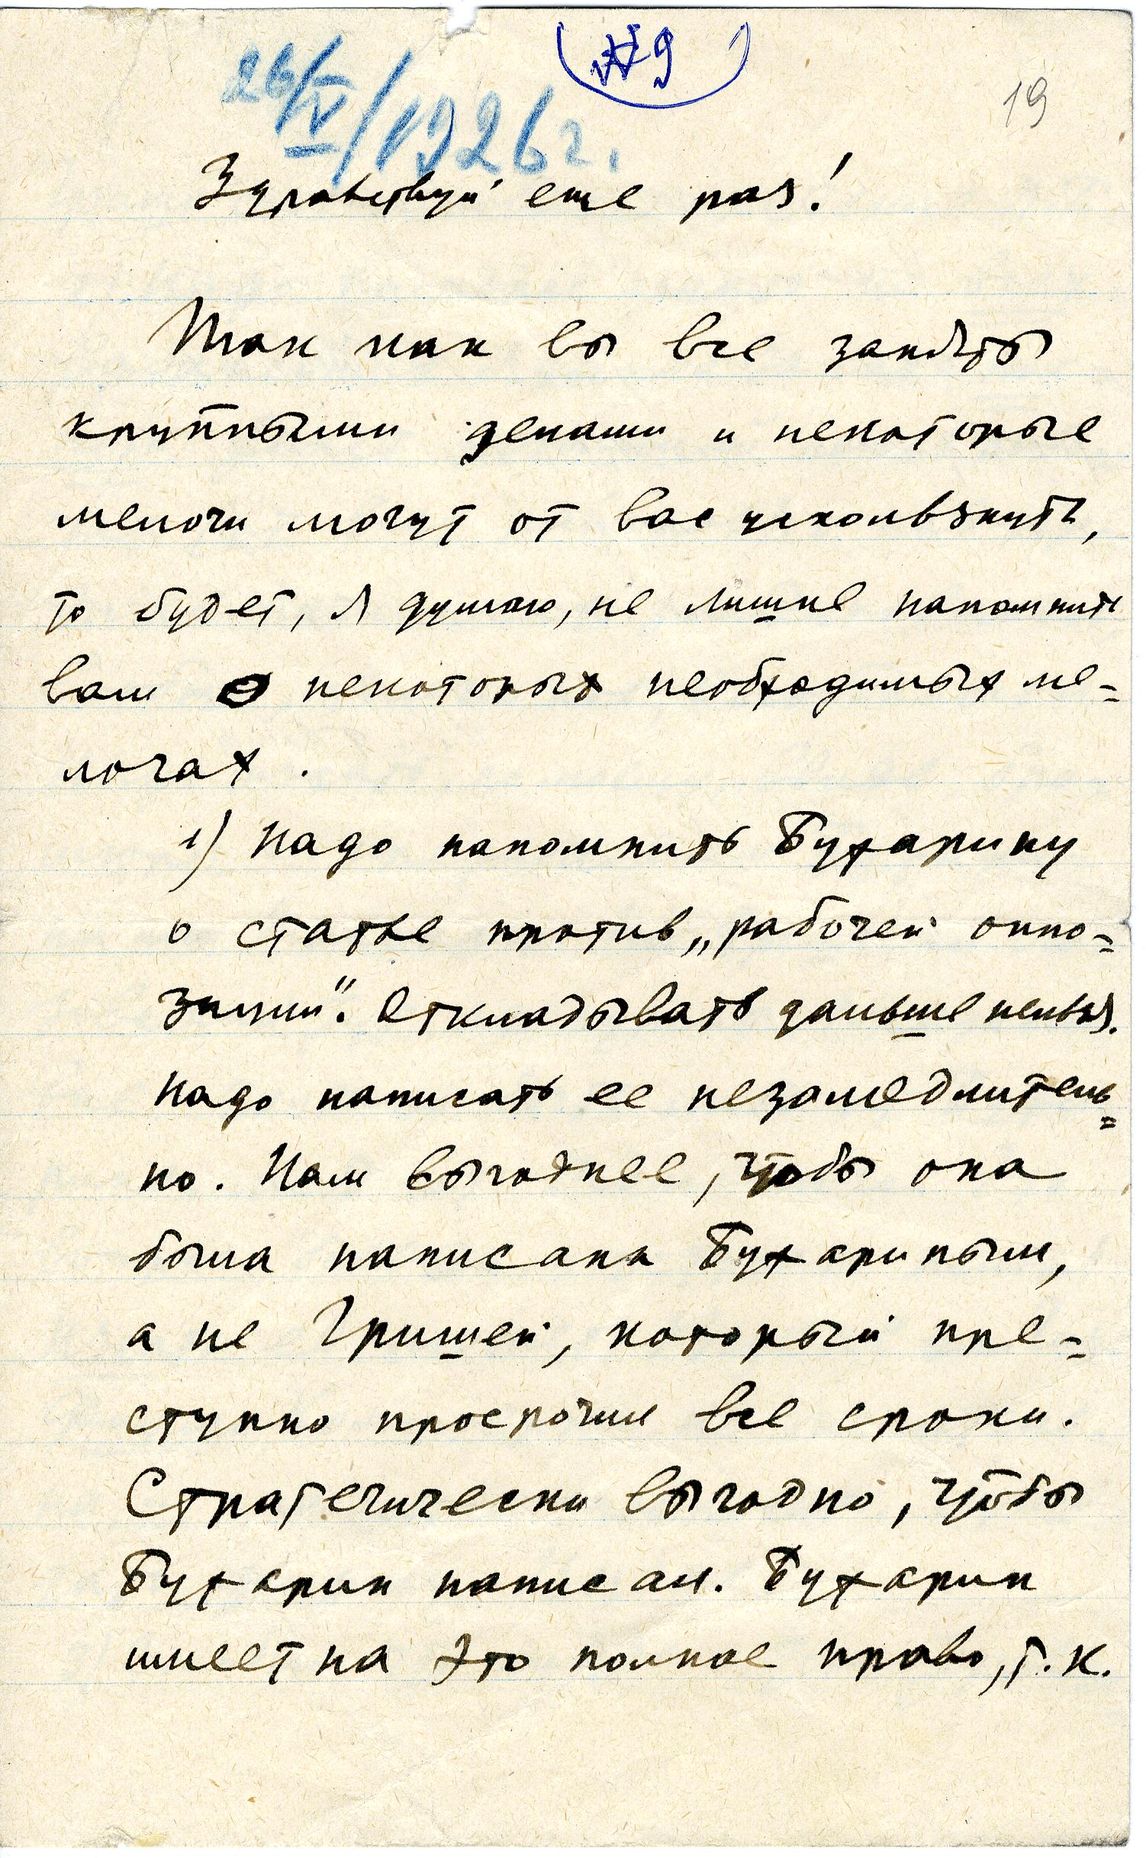 (№9)
19
26/V/1926 г.
Здравствуй еще раз!
Так как вы все заняты
крупными делами и некоторые
мелочи могут от вас ускользнуть,
то будет, я думаю, не лишне напомнить
вам о некоторых необходимых ме=
лочах.
1) Надо напомнить Бухарину
о статье против „рабочей оппо=
зиции". Откладывать дальше нельзя.
Надо написать ее незамедлитель=
но. Нам выгоднее, чтобы она
была написана Бухариным,
а не Гришей, который пре=
ступно просрочил все сроки.
Стратегически выгодно, чтобы
Бухарин написал. Бухарин
имеет на это полное право, т. к.